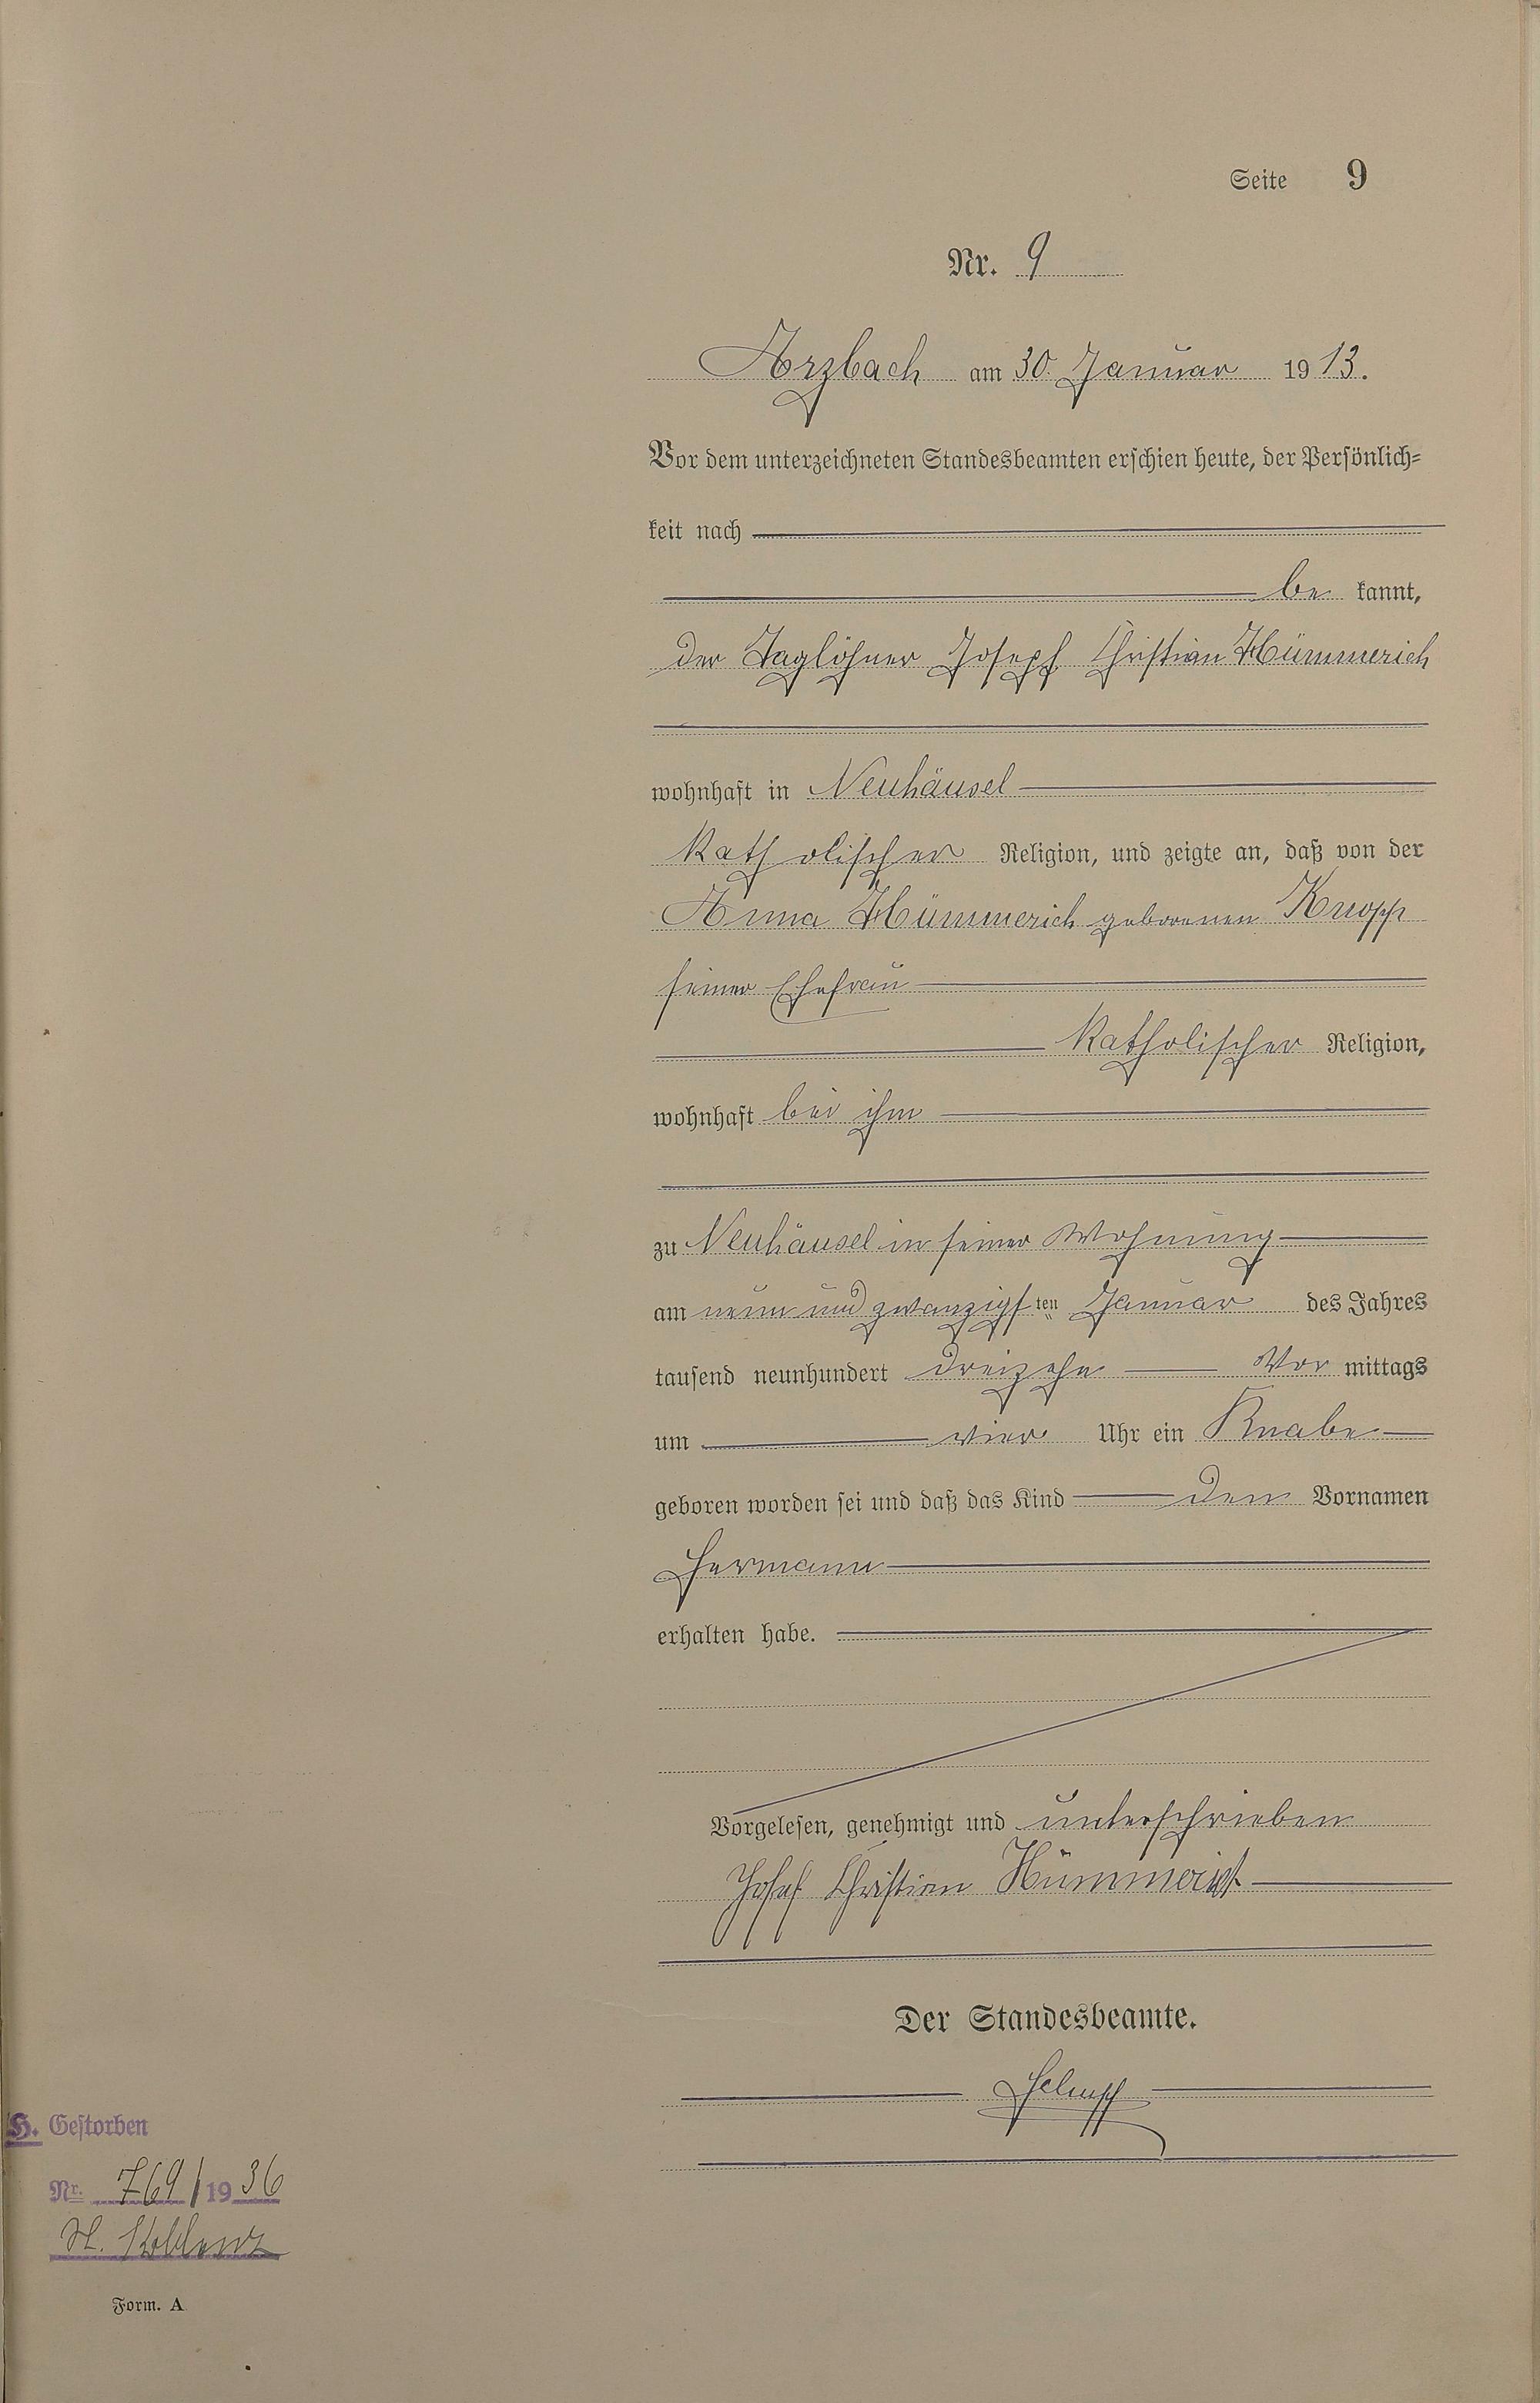 Seite 9
Nr. 9
Arzbach am 30. Januar 1913.
Vor dem unterzeichneten Standesbeamten erschien heute, der Persönlich-
keit nach
be kannt,
der Taglöhner Joseph Christian Hümmerich
wohnhaft in Neuhäusel
katholischer Religion, und zeigte an, daß von der
Anna Hümmerich geborenen Knopp
seiner Ehefrau
katholischer Religion,
wohnhaft bei ihm
zu Neuhäusel in seiner Wohnung
am neun und zwanzigsten Januar des Jahres
tausend neunhundert dreizehn Vor mittags
um vier Uhr ein Knabe
geboren worden sei und daß das Kind den Vornamen
Hermann
erhalten habe.
Vorgelesen, genehmigt und unterschrieben
Josef Christian Hümmerich
Der Standesbeamte.
H. Gestorben
Nr. 769/1936
St. Koblenz
Form. A